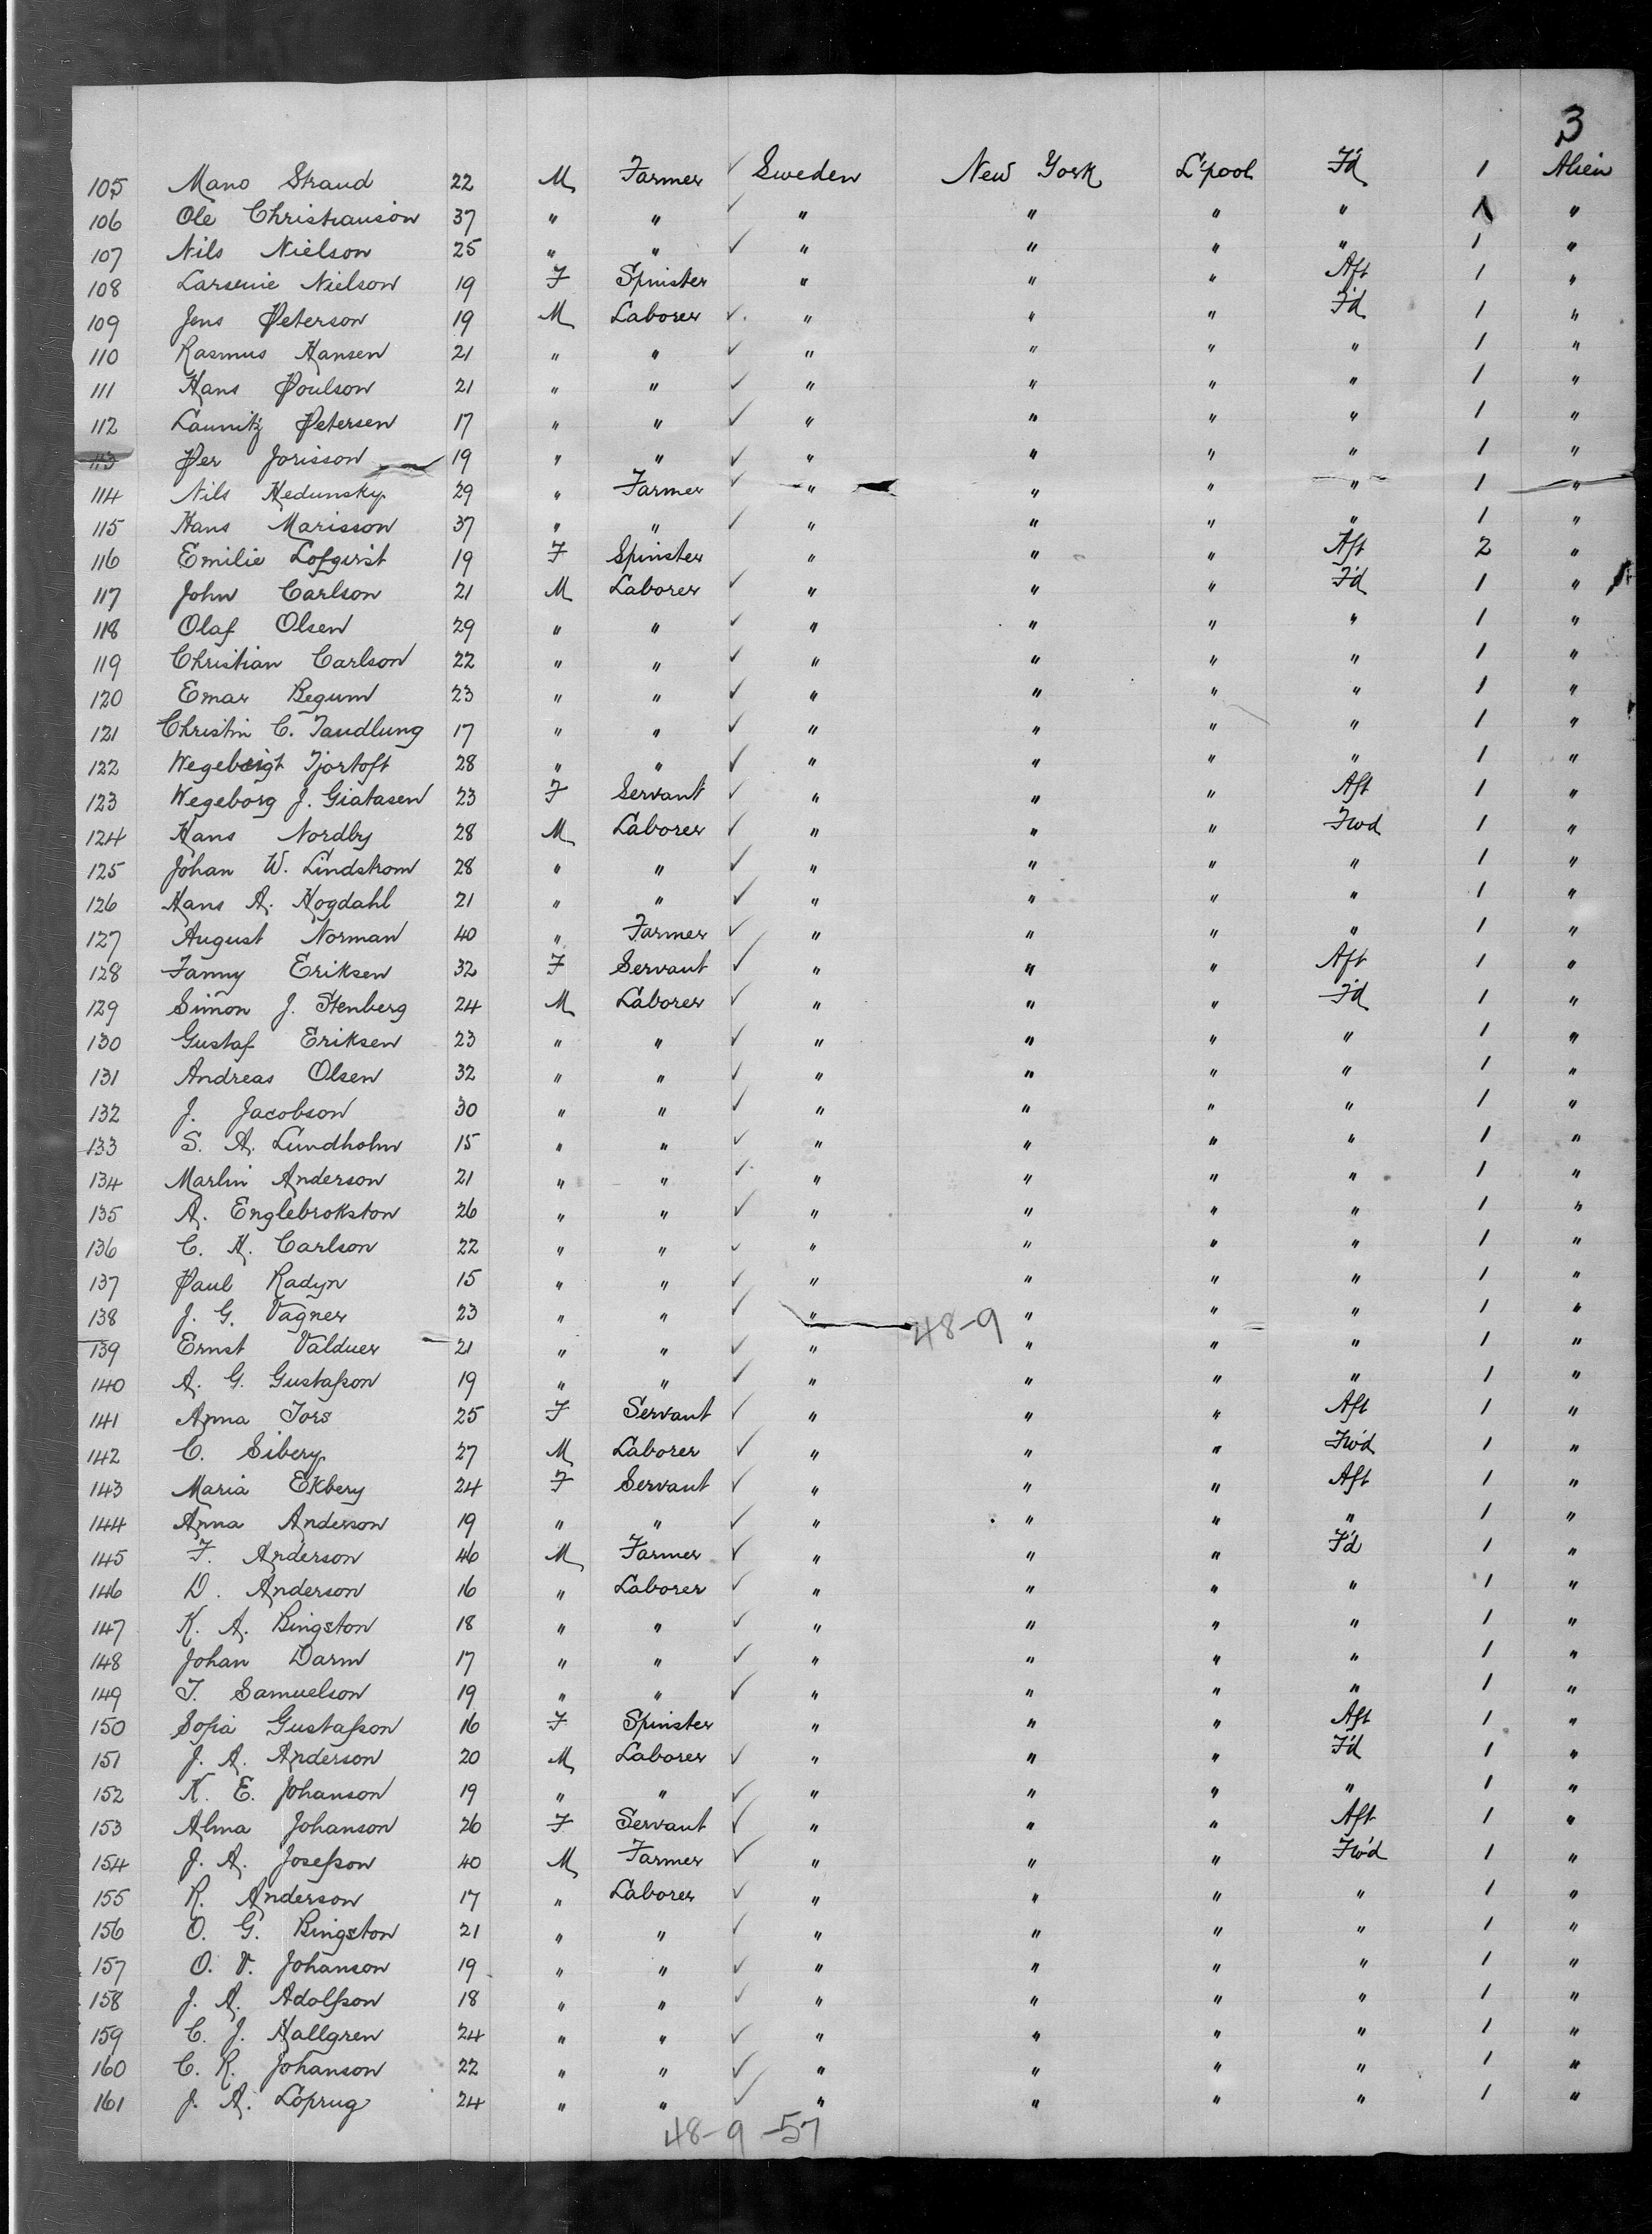 3
105 Mano Strand 22 M Farmer ✓ Sweden New York L'pool F'd 1 Alien
106 Ole Christianson 37 " " ✓ " " " " 1 "
107 Nils Nielson 25 " " ✓ " " " " 1 "
108 Larsenie Nielson 19 F Spinster " " " Aft 1 "
109 Jens Peterson 19 M Laborer ✓ " " " F'd 1 "
110 Rasmus Hansen 21 " " ✓ " " " " 1 "
111 Hans Poulson 21 " " ✓ " " " " 1 "
112 Launitz Petersen 17 " " ✓ " " " " 1 "
113 Per Jorisson 19 " " ✓ " " " " 1 "
114 Nils Hedunsky 29 " Farmer ✓ " " " " 1 "
115 Hans Marisson 37 " " ✓ " " " " 1 "
116 Emilie Lofqvist 19 F Spinster " " " Aft 2 "
117 John Carlson 21 M Laborer ✓ " " " F'd 1 "
118 Olaf Olsen 29 " " ✓ " " " " 1 "
119 Christian Carlson 22 " " ✓ " " " " 1 "
120 Emar Begum 23 " " ✓ " " " " 1 "
121 Christin C. Tandlung 17 " " ✓ " " " " 1 "
122 Wegebrigt Tjortoft 28 " " ✓ " " " " 1 "
123 Wegeborg J. Giatasen 23 F Servant ✓ " " " Aft 1 "
124 Hans Nordby 28 M Laborer ✓ " " " Fwd 1 "
125 Johan W. Lindstrom 28 " " ✓ " " " " 1 "
126 Hans A. Hogdahl 21 " " ✓ " " " " 1 "
127 August Norman 40 " Farmer ✓ " " " " 1 "
128 Fanny Eriksen 32 F Servant ✓ " " " Aft 1 "
129 Simon J. Stenberg 24 M Laborer ✓ " " " F'd 1 "
130 Gustaf Eriksen 23 " " ✓ " " " " 1 "
131 Andreas Olsen 32 " " ✓ " " " " 1 "
132 J. Jacobson 30 " " ✓ " " " " 1 "
133 S. A. Lundholm 15 " " ✓ " " " " 1 "
134 Marlin Anderson 21 " " ✓ " " " " 1 "
135 A. Englebrokston 26 " " ✓ " " " " 1 "
136 C. H. Carlson 22 " " ✓ " " " " 1 "
137 Paul Radyn 15 " " ✓ " " " " 1 "
138 J. G. Vagner 23 " " ✓ " 48-9 " " " 1 "
139 Ernst Valduer 21 " " ✓ " " " " 1 "
140 A. G. Gustafson 19 " " ✓ " " " " 1 "
141 Anna Tors 25 F Servant ✓ " " " Aft 1 "
142 C. Sibery 27 M Laborer ✓ " " " Fw'd 1 "
143 Maria Ekbery 24 F Servant ✓ " " " Aft 1 "
144 Anna Anderson 19 " " ✓ " " " " 1 "
145 F. Anderson 46 M Farmer ✓ " " " F'd 1 "
146 D. Anderson 16 " Laborer ✓ " " " " 1 "
147 K. A. Bingston 18 " " ✓ " " " " 1 "
148 Johan Darm 17 " " ✓ " " " " 1 "
149 T. Samuelson 19 " " ✓ " " " " 1 "
150 Sofia Gustafson 16 F Spinster " " " Aft 1 "
151 J. A. Anderson 20 M Laborer ✓ " " " F'd 1 "
152 K. E. Johanson 19 " " ✓ " " " " 1 "
153 Alma Johanson 26 F Servant ✓ " " " Aft 1 "
154 J. A. Josefson 40 M Farmer ✓ " " " Fw'd 1 "
155 R. Anderson 17 " Laborer ✓ " " " " 1 "
156 O. G. Bingston 21 " " ✓ " " " " 1 "
157 O. V. Johanson 19 " " ✓ " " " " 1 "
158 J. A. Adolfson 18 " " ✓ " " " " 1 "
159 C. J. Hallgren 24 " " ✓ " " " " 1 "
160 C. R. Johanson 22 " " ✓ " " " " 1 "
161 J. A. Loprug 24 " " ✓ " " " " 1 "
48-9-57